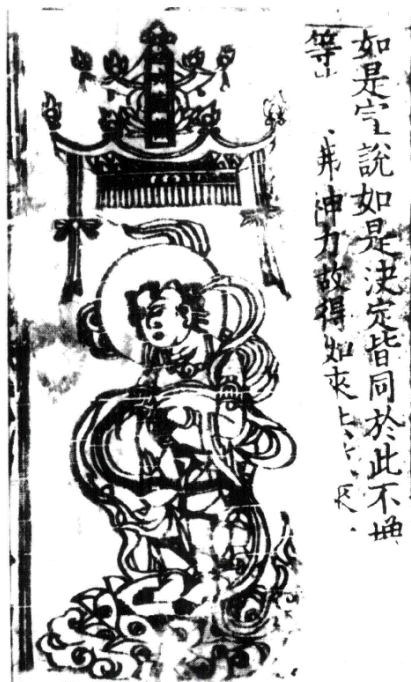 如是宣說如是決定皆同於此不增
等神力故得如來